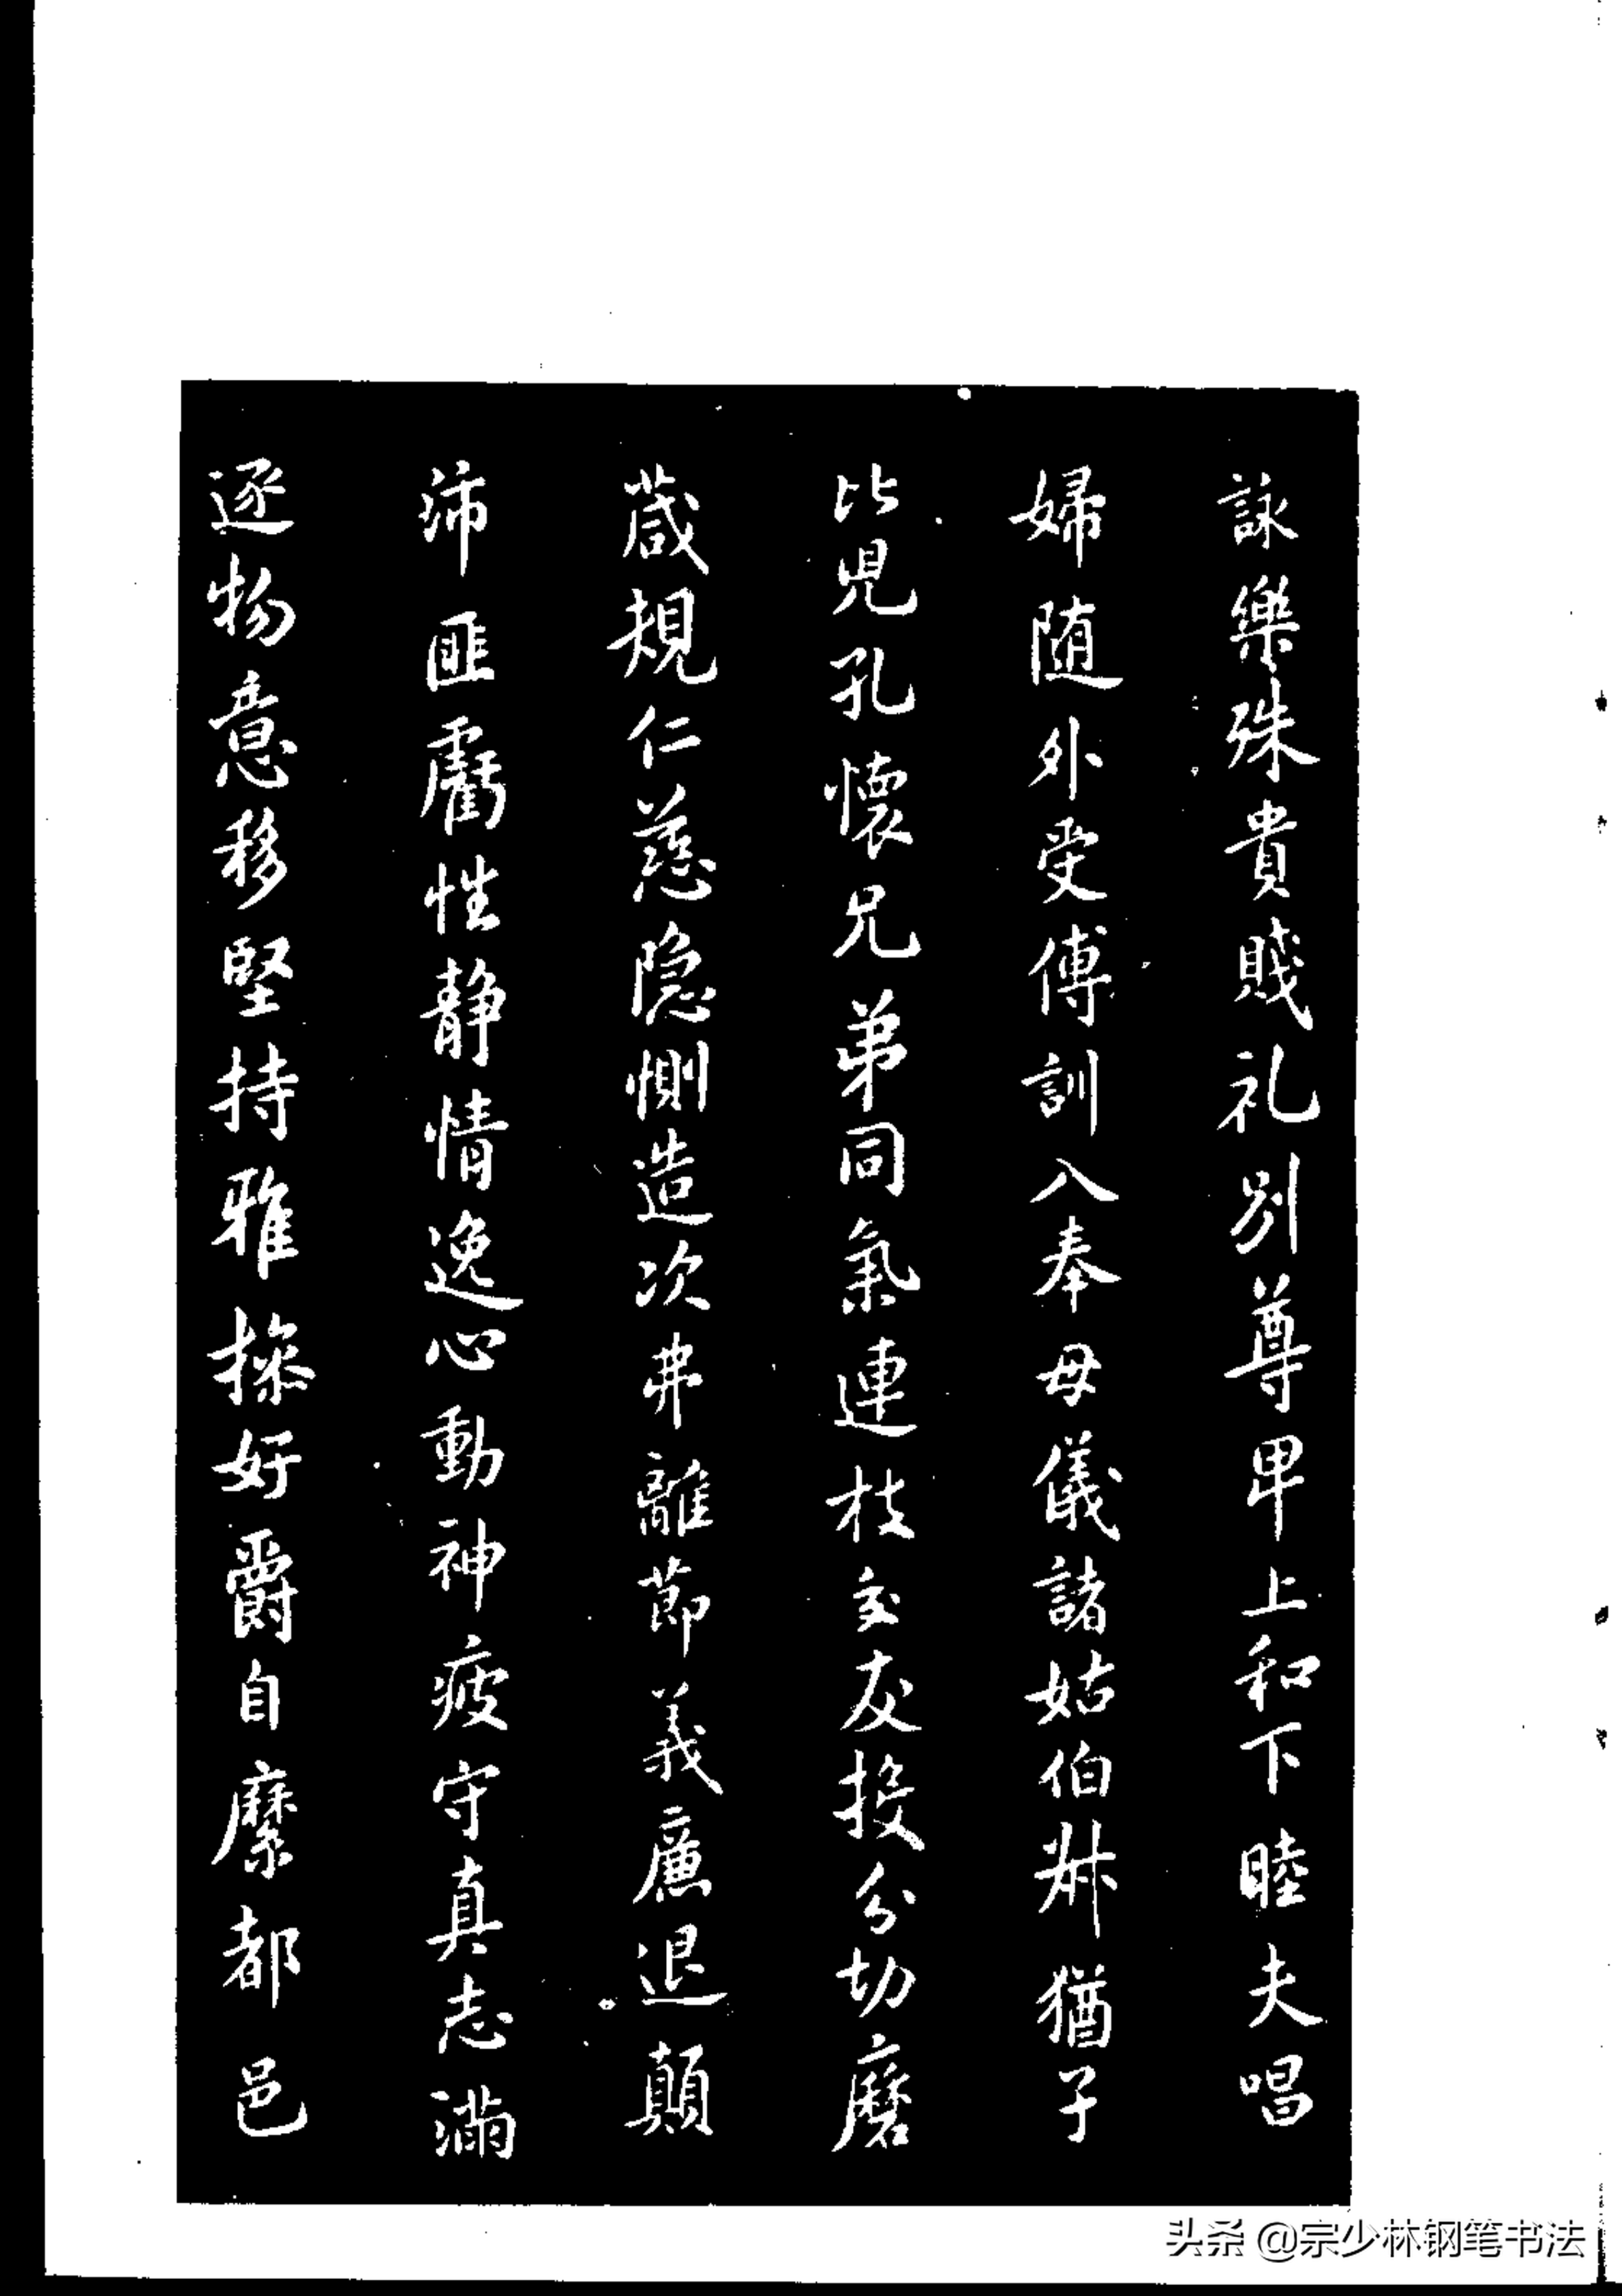 詠樂殊貴賤礼别尊卑上和下睦夫唱
婦随外受傅訓入奉母儀諸姑伯叔猶子
比兒孔懷兄弟同氣連枝交友投分切磨
葴規仁慈隐惻造次弗離節義廉退顛
沛匪虧性静情逸心動神疲守真志滿
逐物意移堅持雅操好爵自縻都邑
头条 @宗少林钢笔书法